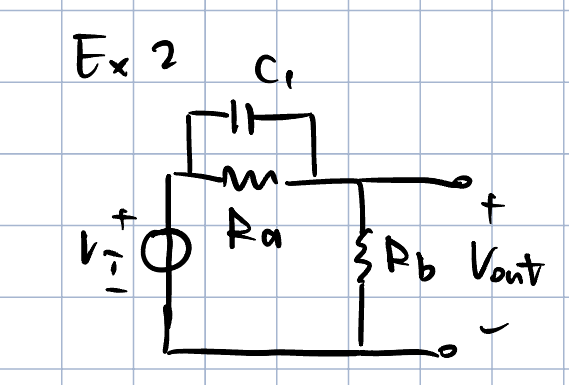 Ex 2
C1
+
Ra
VI
-
+
Rb
Vout
-